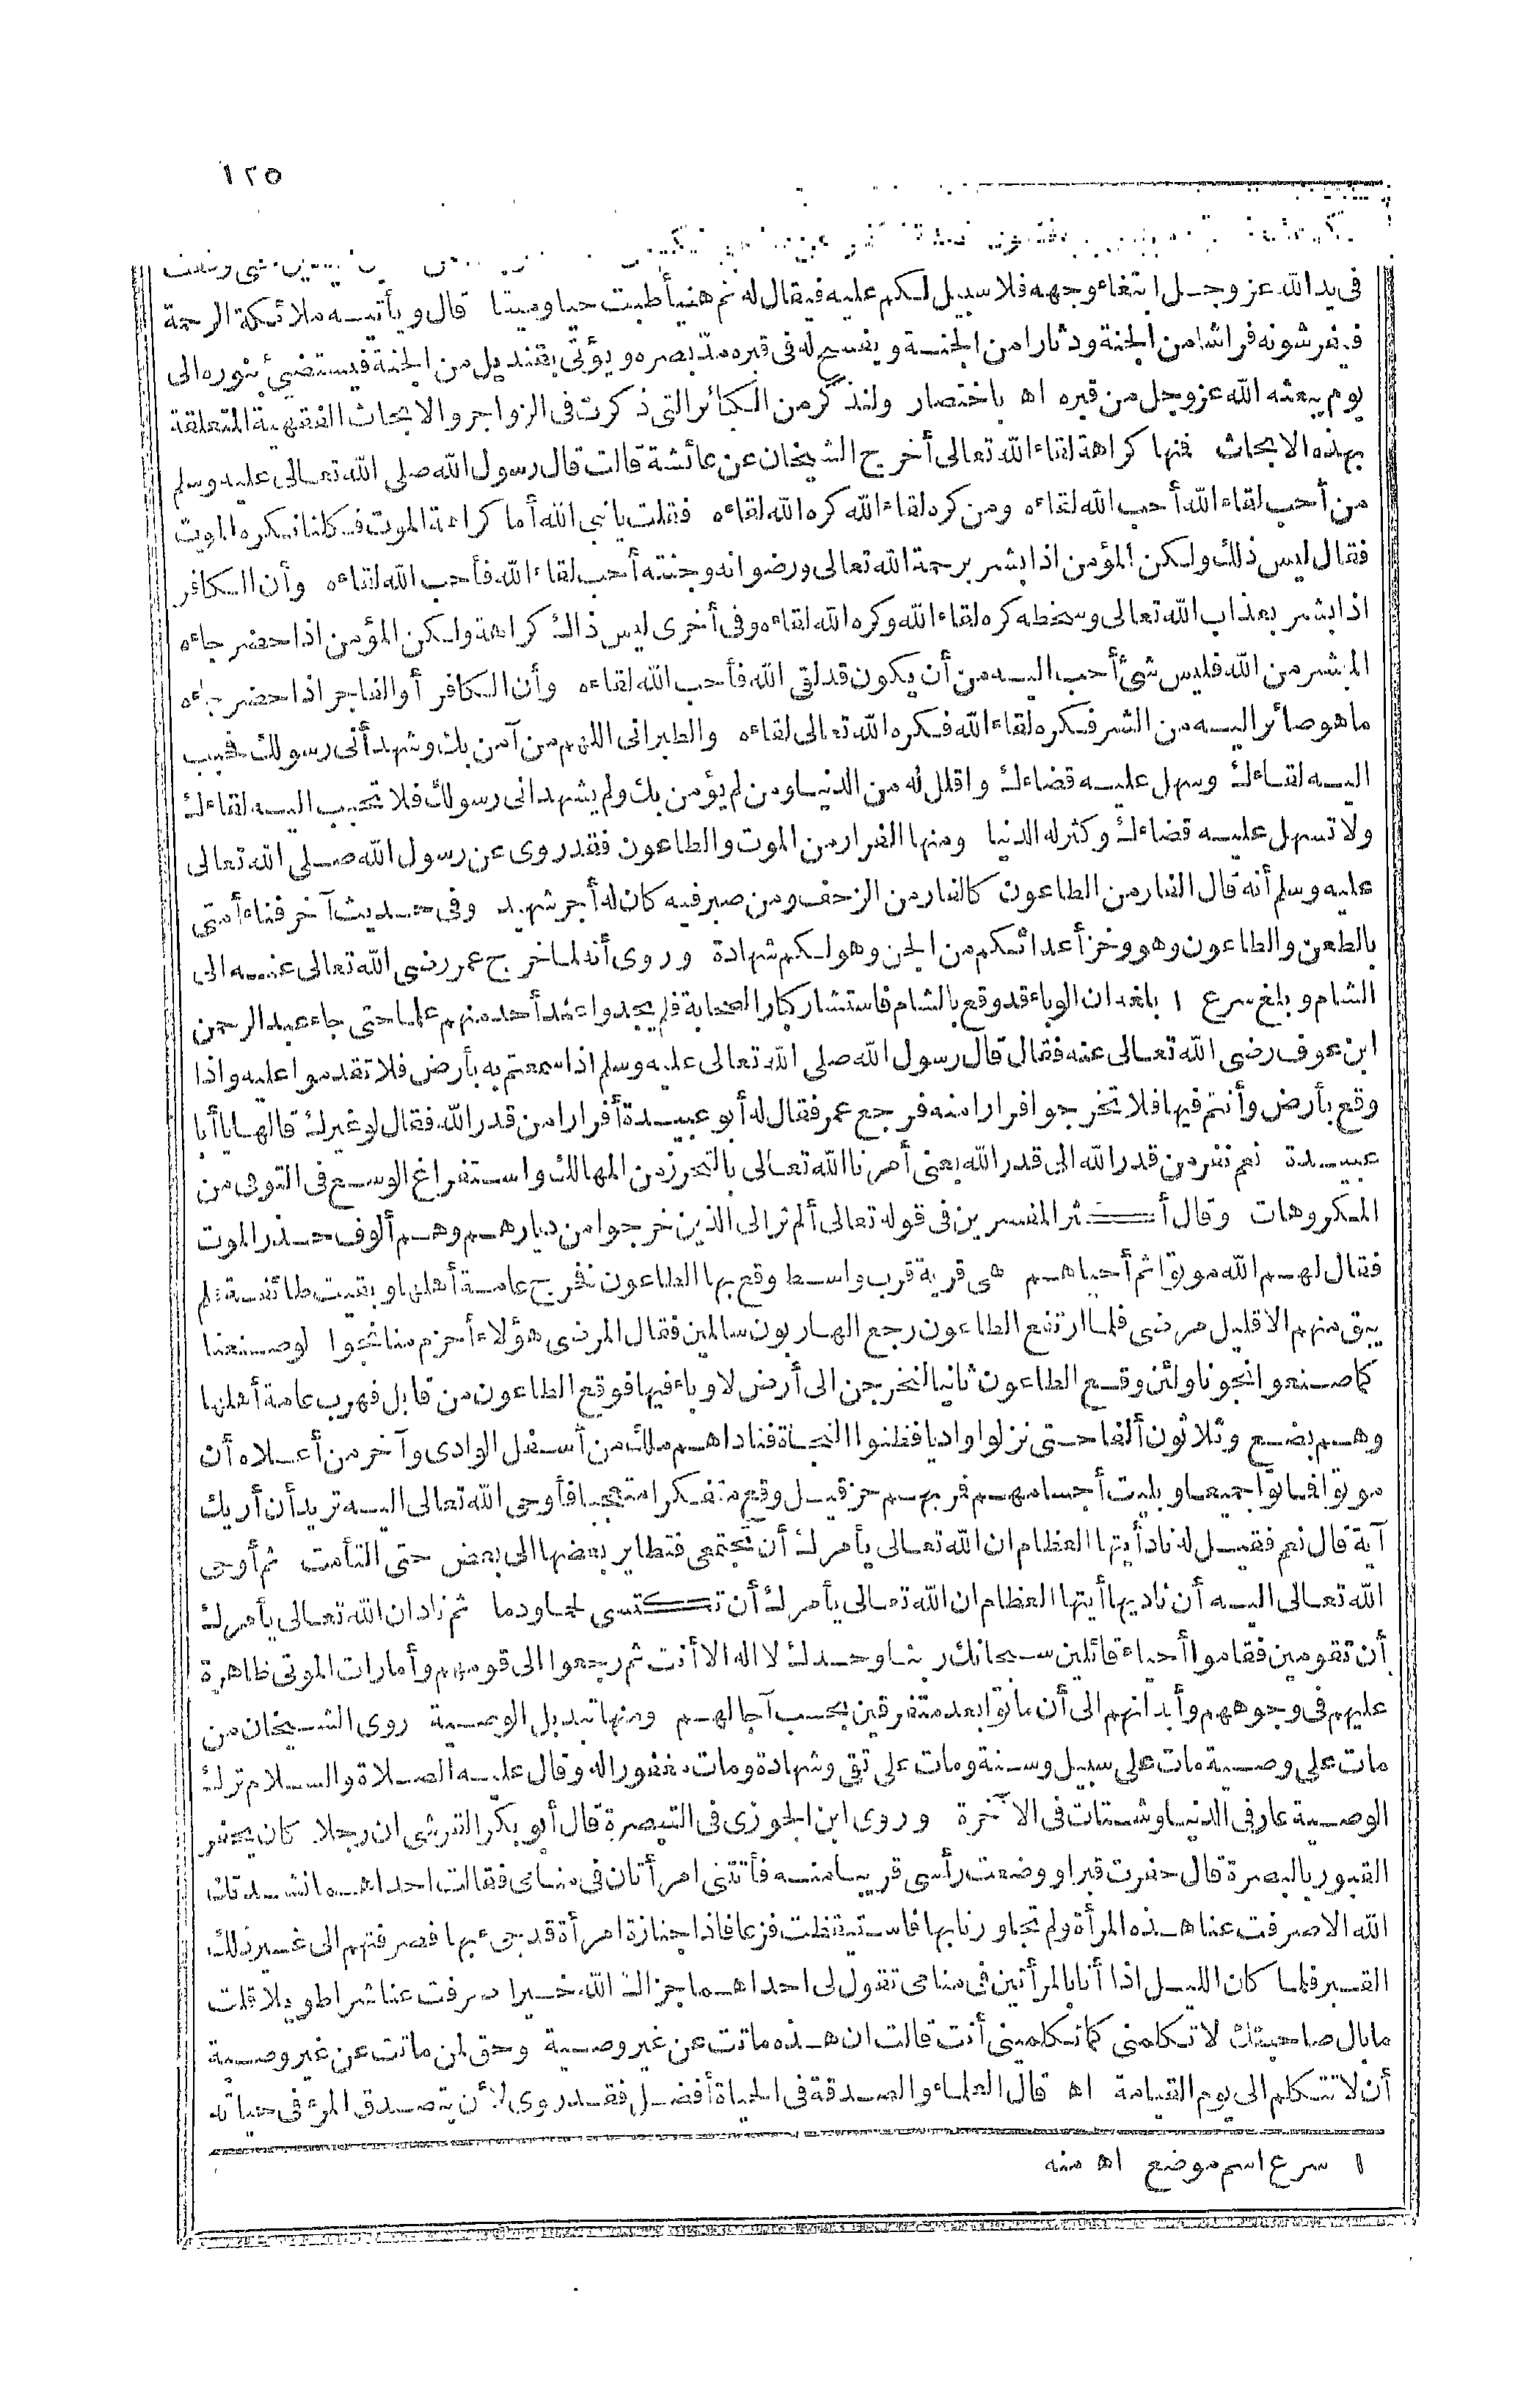 ١٢٥
في يد الله عز وجل ابتغاء وجهه فلا سبيل لكم عليه فيقال له نم هنيأ طبت حيا وميتا قال ويأتيه ملائكة الرحمة
فيفرشونه فراشا من الجنة ودثارا من الجنة ويفسح له في قبره مد بصره ويؤتى بقنديل من الجنة فيستضيء بنوره الى
يوم يبعثه الله عز وجل من قبره اه باختصار ولنذكر من الكبائر التي ذكرت في الزواجر والابحاث الفقهية المتعلقة
بهذه الابحاث فمنها كراهة لقاء الله تعالى أخرج الشيخان عن عائشة قالت قال رسول الله صلى الله تعالى عليه وسلم
من أحب لقاء الله أحب الله لقاءه ومن كره لقاء الله كره الله لقاءه فقلت يا نبي الله أما كراهة الموت فكلنا نكره الموت
فقال ليس ذلك ولكن المؤمن اذا بشر برحمة الله تعالى ورضوانه وجنته أحب لقاء الله فأحب الله لقاءه وأن الكافر
اذا بشر بعذاب الله تعالى وسخطه كره لقاء الله وكره الله لقاءه وفي أخرى ليس ذاك كراهة ولكن المؤمن اذا حضر جاءه
المبشر من الله فليس شئ أحب اليه من أن يكون قد لقي الله فأحب الله لقاءه وأن الكافر أو الفاجر اذا حضر جاءه
ما هو صائر اليه من الشر فكره لقاء الله فكره الله تعالى لقاءه والطبراني اللهم من آمن بك وشهد أني رسولك فحبب
اليه لقاءك وسهل عليه قضاءك واقلل له من الدنيا ومن لم يؤمن بك ولم يشهد اني رسولك فلا تحبب اليه لقاءك
ولا تسهل عليه قضاءك وكثر له الدنيا ومنها الفرار من الموت والطاعون فقد روى عن رسول الله صلى الله تعالى
عليه وسلم أنه قال الفار من الطاعون كالفار من الزحف ومن صبر فيه كان له أجر شهيد وفي حديث آخر فناء أمتي
بالطعن والطاعون وهو وخز أعدائكم من الجن وهو لكم شهادة وروى أنه لما خرج عمر رضي الله تعالى عنه الى
الشام وبلغ سرع ١ بلغه ان الوباء قد وقع بالشام فاستشار كبار الصحابة فلم يجدوا عند أحد منهم علما حتى جاء عبد الرحمن
ابن عوف رضي الله تعالى عنه فقال قال رسول الله صلى الله تعالى عليه وسلم اذا سمعتم به بأرض فلا تقدموا عليه واذا
وقع بأرض وأنتم فيها فلا تخرجوا فرارا منه فرجع عمر فقال له أبو عبيدة أفرارا من قدر الله فقال لو غيرك قالها يا أبا
عبيدة نعم نفر من قدر الله الى قدر الله يعني أمرنا الله تعالى بالتحرز من المهالك واستفراغ الوسع في التوقي من
المكروهات وقال أكثر المفسرين في قوله تعالى ألم تر الى الذين خرجوا من ديارهم وهم ألوف حذر الموت
فقال لهم الله موتوا ثم أحياهم هي قرية قرب واسط وقع بها الطاعون فخرج عامة أهلها وبقيت طائفة لم
يبق منهم الا قليل مرضى فلما ارتفع الطاعون رجع الهاربون سالمين فقال المرضى هؤلاء أحزم منا نجوا لو صنعنا
كما صنعوا نجونا ولئن وقع الطاعون ثانيا لنخرجن الى أرض لا وباء فيها فوقع الطاعون من قابل فهرب عامة أهلها
وهم بضع وثلاثون ألفا حتى نزلوا واديا فظنوا النجاة فناداهم ملك من أسفل الوادي وآخر من أعلاه أن
موتوا فماتوا جميعا وبليت أجسامهم فمر بهم حزقيل وقع متفكرا متعجبا فأوحى الله تعالى اليه تريد أن أريك
آية قال نعم فقيل له ناد أيتها العظام ان الله تعالى يأمرك أن تجتمعي فتطاير بعضها الى بعض حتى التأمت ثم أوحى
الله تعالى اليه أن ناديها أيتها العظام ان الله تعالى يأمرك أن تكتسي لحما ودما ثم زاد ان الله تعالى يأمرك
أن تقومين فقاموا أحياء قائلين سبحانك ربنا وحدك لا اله الا أنت ثم رجعوا الى قومهم وأمارات الموتى ظاهرة
عليهم في وجوههم وأبدانهم الى أن ماتوا بعد متفرقين بحسب آجالهم ومنها تبديل الوصية روى الشيخان من
مات على وصية مات على سبيل وسنة ومات على تقى وشهادة ومات مغفورا له وقال عليه الصلاة والسلام ترك
الوصية عار في الدنيا وشتات في الآخرة وروى ابن الجوزي في التبصرة قال أبو بكر القرشي ان رجلا كان يحفر
القبور بالبصرة قال حفرت قبرا ووضعت رأسي قريبا منه فأتتني امرأتان في منامي فقالت احداهما نشدتك
الله الا صرفت عنا هذه المرأة ولم تجاورنا بها فاستيقظت فزعا فاذا جنازة امرأة قد جيء بها فصرفتهم الى غير ذلك
القبر فلما كان الليل اذا أنا بالمرأتين في منامي تقول لي احداهما جزاك الله خيرا صرفت عنا شرا طويلا قلت
ما بال صاحبتك لا تكلمني كما تكلميني أنت قالت ان هذه ماتت عن غير وصية وحق لمن ماتت عن غير وصية
أن لا تتكلم الى يوم القيامة اه قال العلماء والصدقة في الحياة أفضل فقد روى لأن يتصدق المرء في حياته
١ سرع اسم موضع اه منه